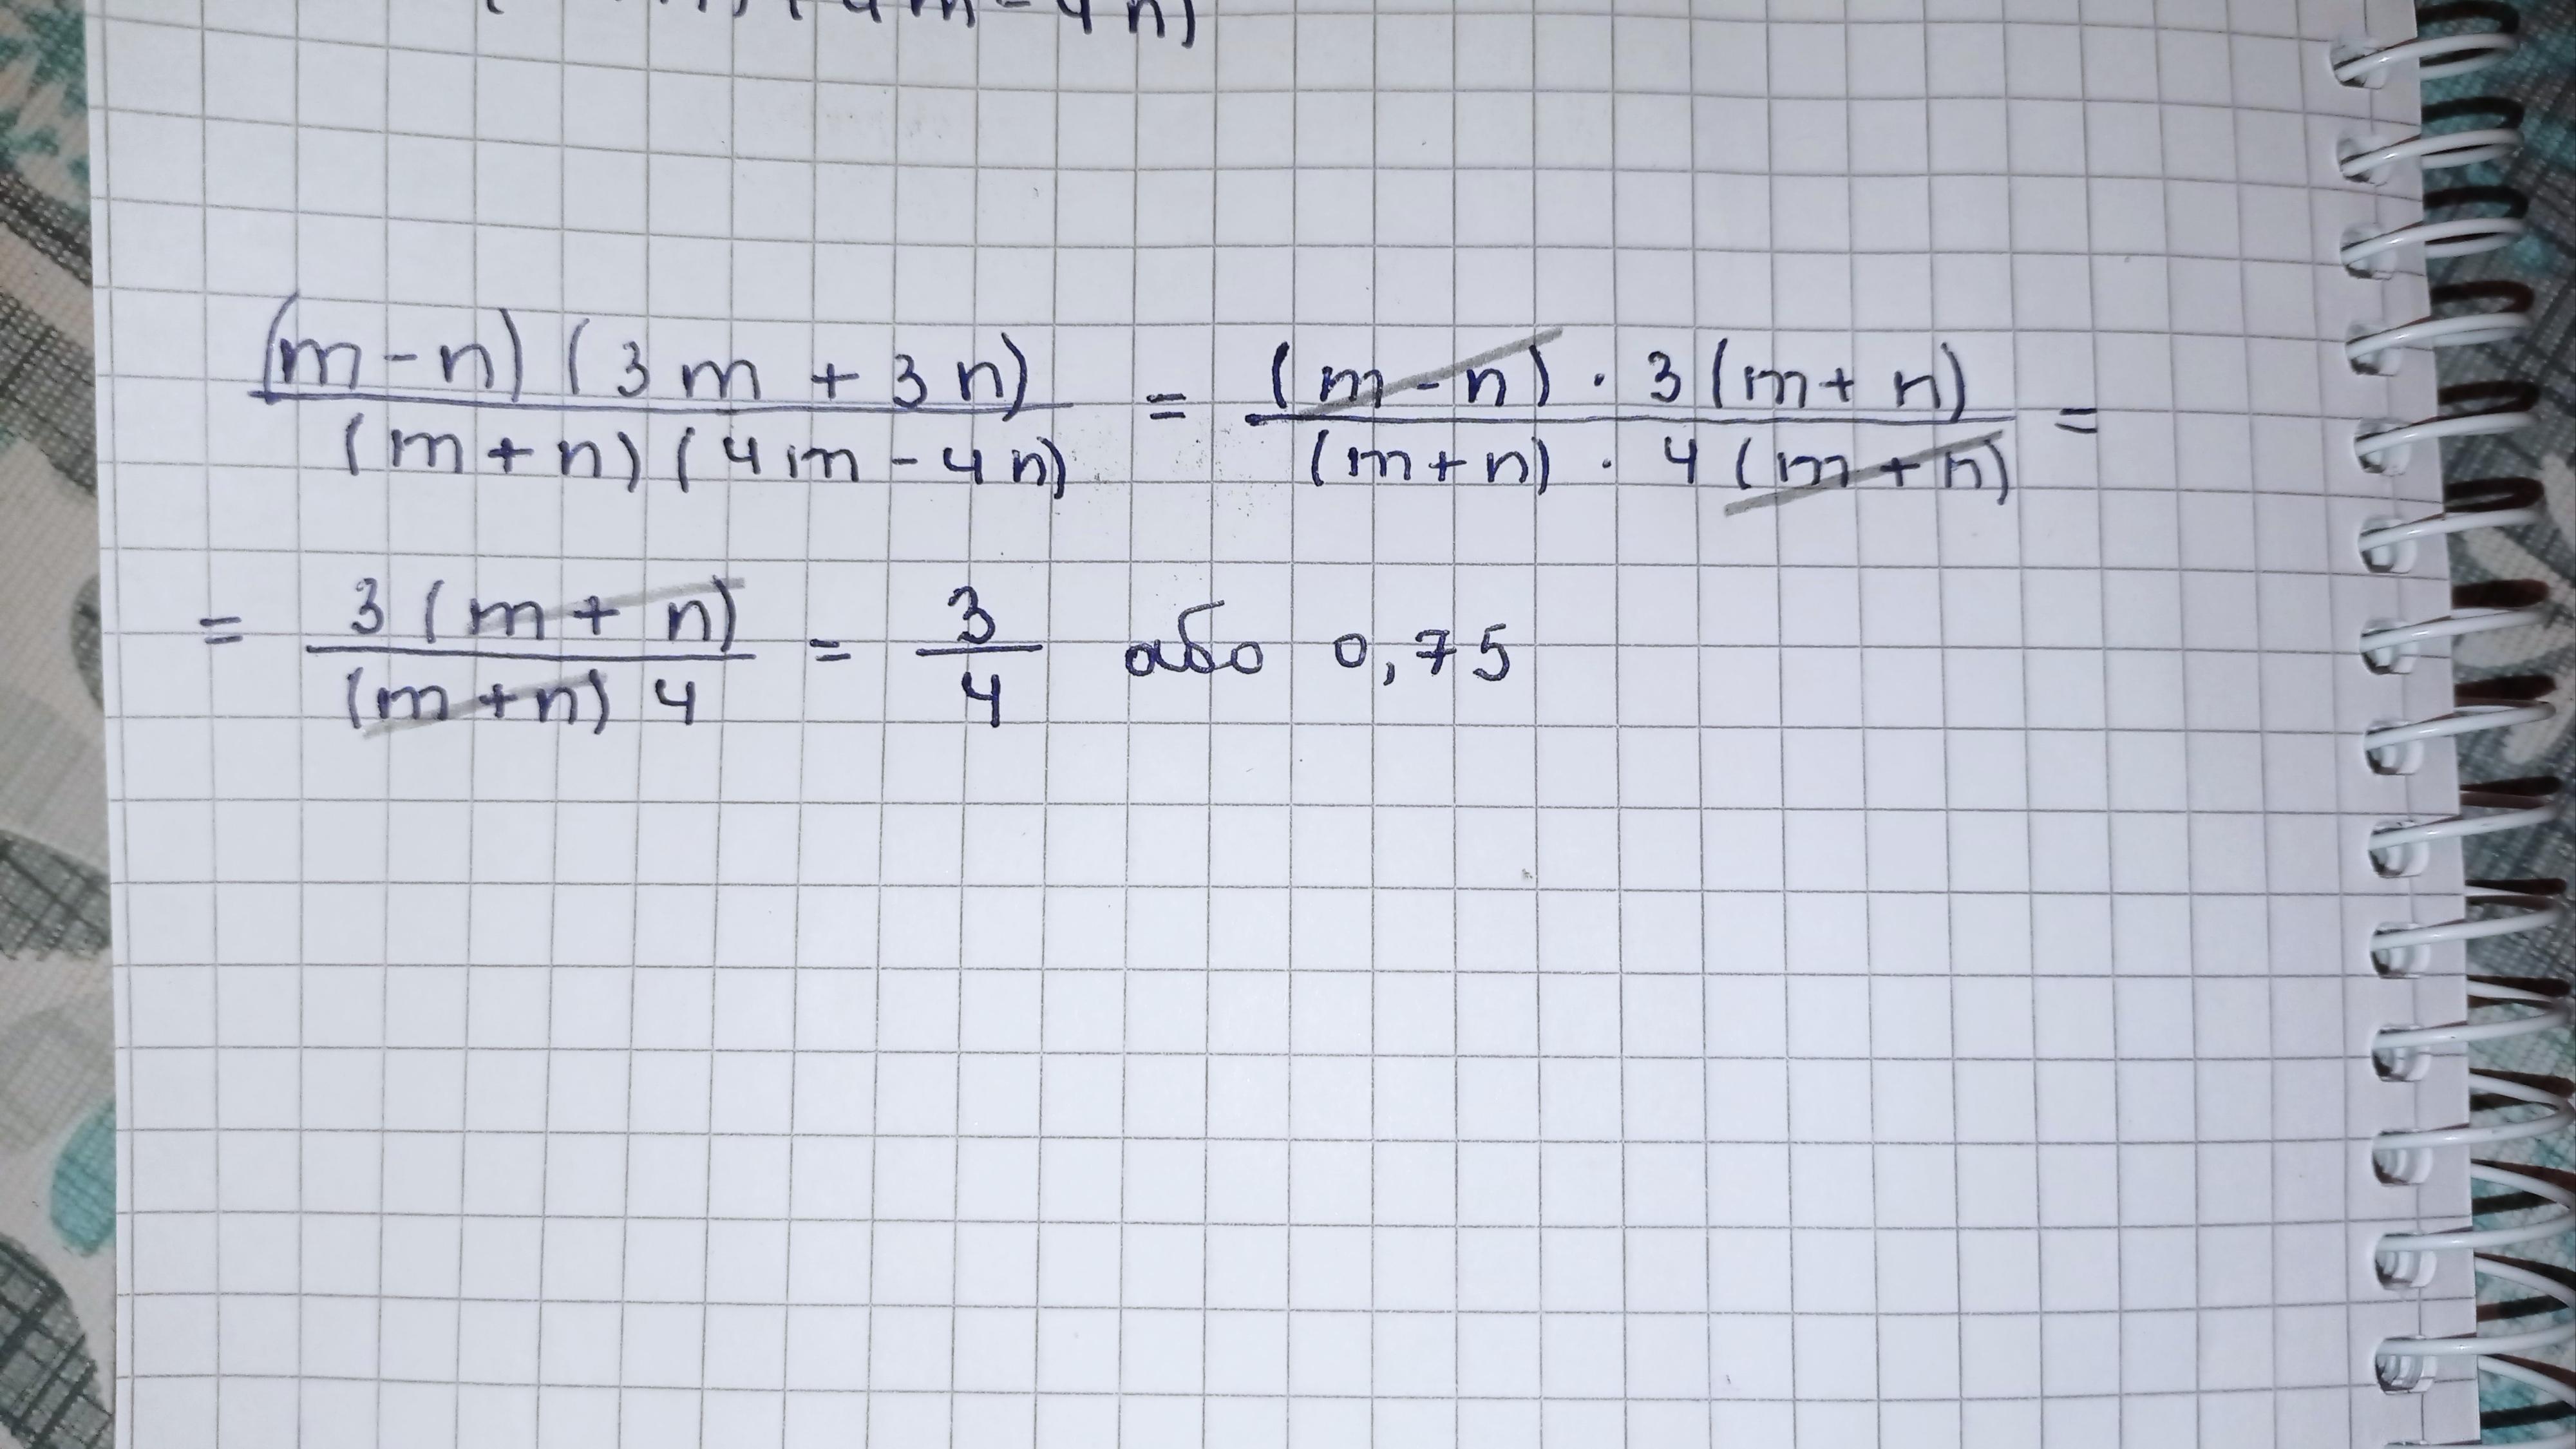 (4m-4n)
(m-n)(3m+3n)/(m+n)(4m-4n) = (m-n)·3(m+n)/(m+n)·4(m+n) =
= 3(m+n)/(m+n)4 = 3/4 або 0,75